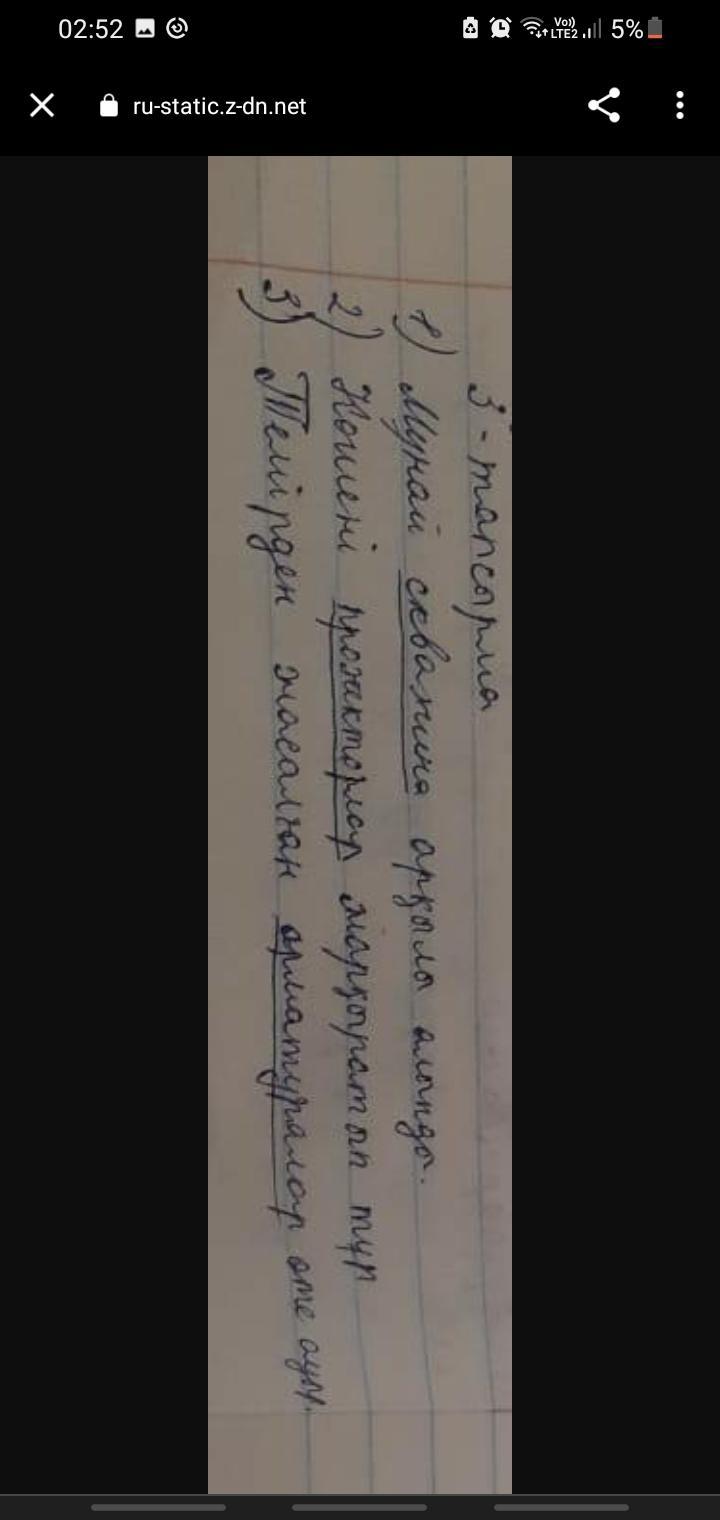 02:52
Vo))
LTE2
5%
ru-static.z-dn.net
3-тапсырма
1) Мұнай скважина арқылы алынды.
2) Көшені прожекторлар жарқыратып тұр
3) Темірден жасалған арматуралар өте ауыр.